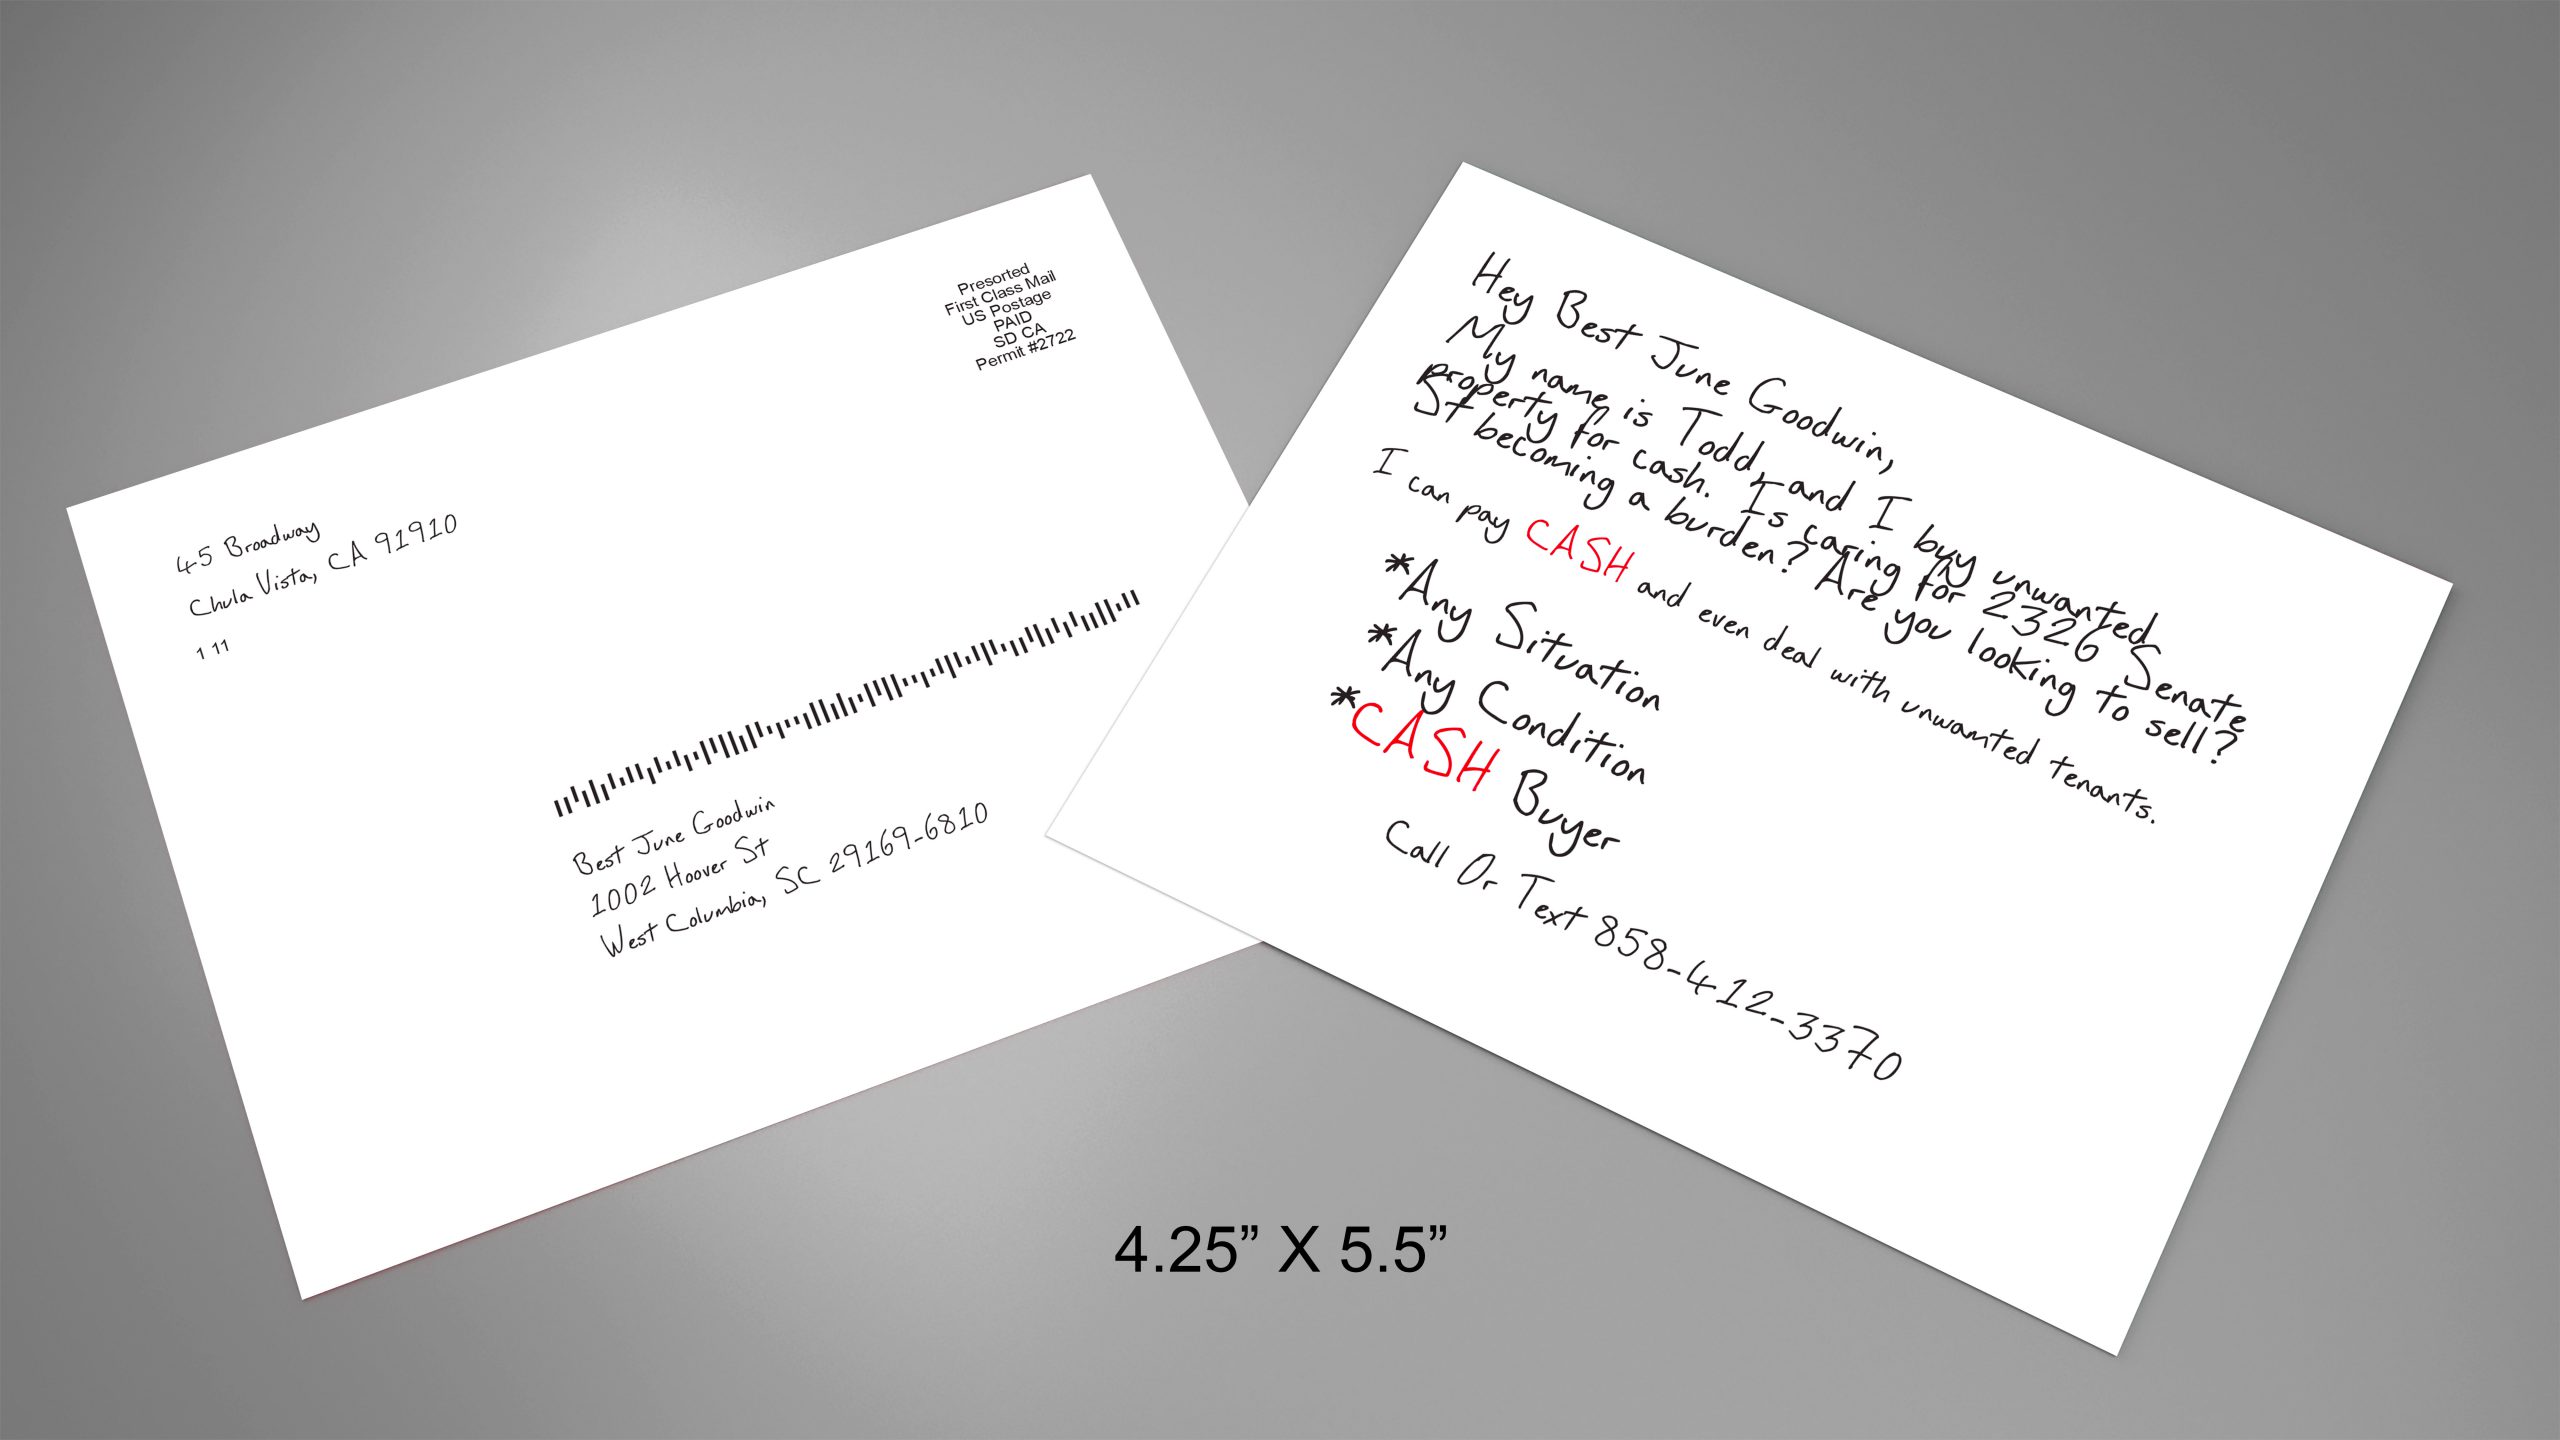 Presorted
First Class Mail
US Postage
PAID
SD CA
Permit #2722
45 Broadway
Chula Vista, CA 91910
1 11
Best June Goodwin
1002 Hoover St
West Columbia, SC 29169-6810
Hey Best June Goodwin,
My name is Todd, and I buy unwanted
property for cash. Is caring for 2326 Senate
St becoming a burden? Are you looking to sell?
I can pay CASH and even deal with unwanted tenants.
*Any Situation
*Any Condition
*CASH Buyer
Call Or Text 858-412-3370
4.25” X 5.5”